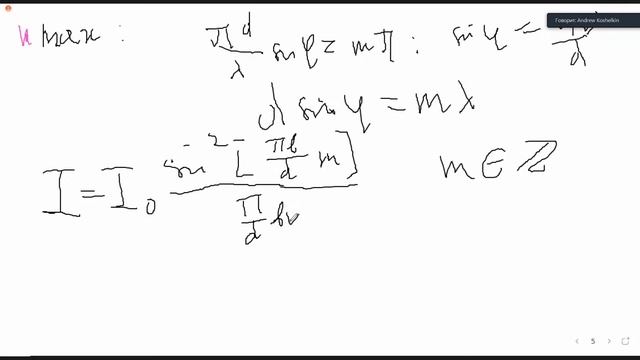 Говорит: Andrew Koshelkin
max : πd/λ sin φ = mπ : sin φ =
d sin φ = mλ
I = I₀ sin²[πb/d m] / π/d bν m ∈ ℤ
5